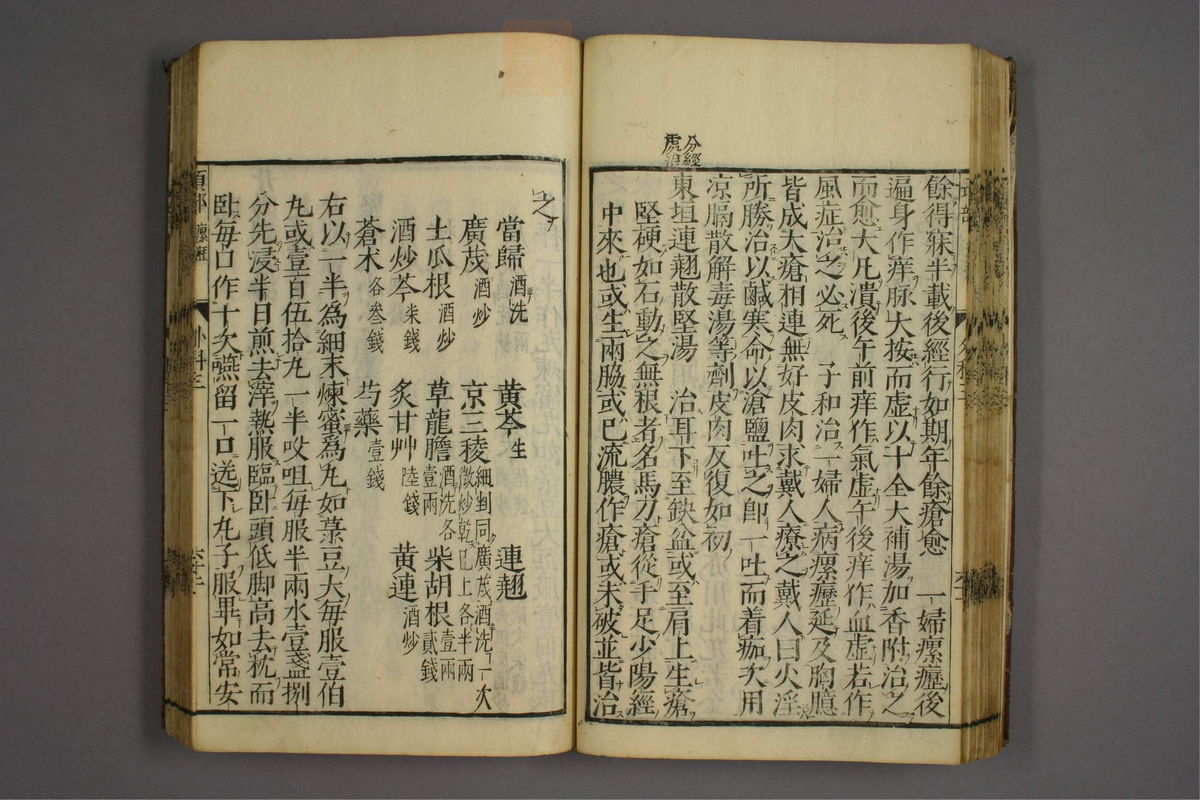 分經
處治
餘得寐半載後經行如期年餘瘡愈　一婦瘰癧後
遍身作痒脉大按而虛以十全大補湯加香附治之
而愈大凡潰後午前痒作氣虛午後痒作血虛若作
風症治之必死　子和治一婦人病瘰癧延及胸臆
皆成大瘡相連無好皮肉求戴人療之戴人曰火淫
所勝治以鹹寒命以滄鹽吐之卽一吐而着痂次用
凉膈散解毒湯等劑皮肉反復如初
東垣連翹散堅湯　治耳下至缺盆或至肩上生瘡
堅硬如石動之無根者名馬刀瘡從手足少陽經
中來也或生兩脇或已流膿作瘡或未破並皆治
之
當歸酒洗　黄芩生　連翹
廣茂酒炒　京三稜細剉同廣茂酒洗一次微炒乾已上各半兩
土瓜根酒炒　草龍膽酒洗各壹兩　柴胡根壹兩貳錢
酒炒芩柒錢　炙甘艸陸錢　黄連酒炒
蒼术各叁錢　芍藥壹錢
右以一半爲細末煉蜜爲丸如菉豆大每服壹伯
丸或壹百伍拾丸一半㕮咀每服半兩水壹盞捌
分先浸半日煎去滓熱服臨卧頭低脚高去枕而
卧每口作十次嚥留一口送下丸子服畢如常安
項部　瘰癧
外科三
六十二